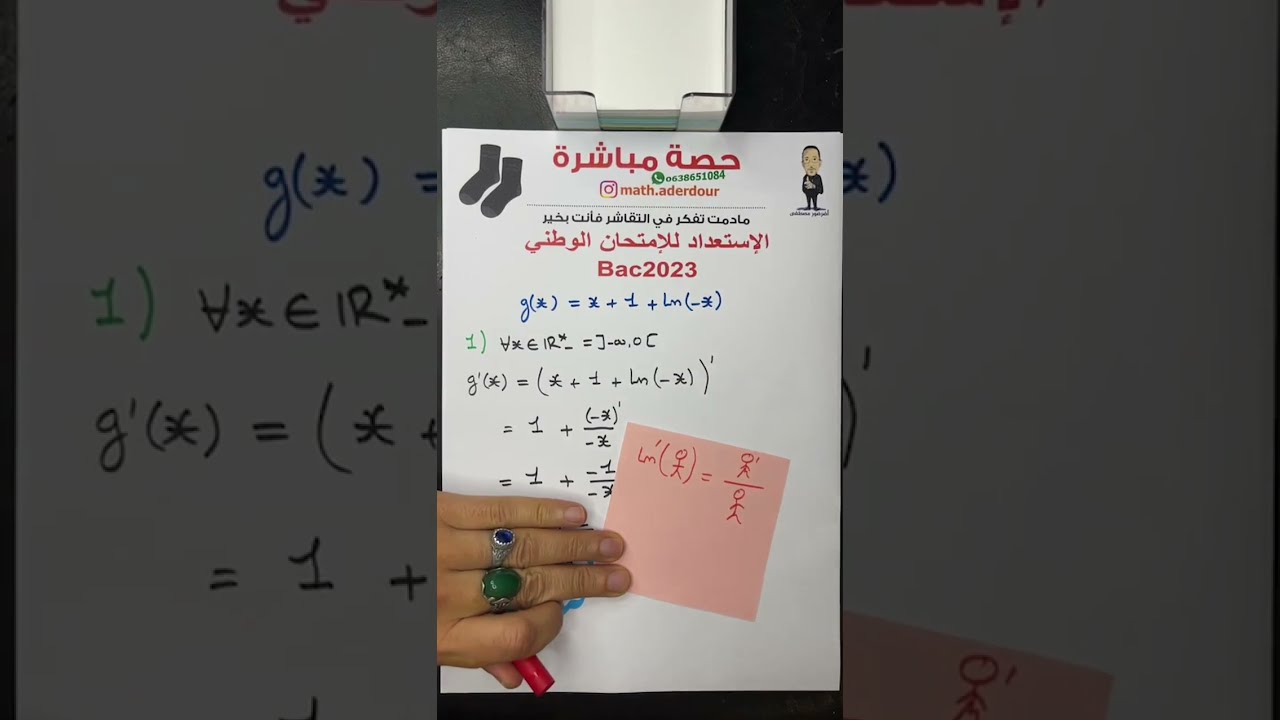 حصة مباشرة
0638651084
math.aderdour
أضرضور مصطفى
مادمت تفكر في التقاشر فأنت بخير
الإستعداد للإمتحان الوطني
Bac2023
g(x) = x + 1 + Ln(-x)
1) ∀x ∈ IR*_ = ]-∞,0[
g'(x) = (x + 1 + Ln(-x))'
= 1 + (-x)'/-x
= 1 + -1/-x
Ln'( ) = '/